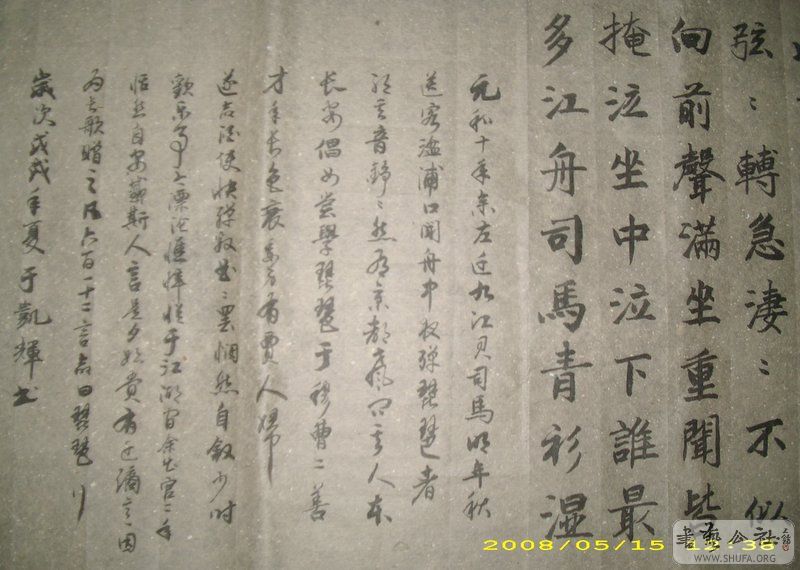 弦〻轉急淒〻不似
向前聲滿坐重聞皆
掩泣坐中泣下誰最
多江舟司馬青衫湿
元和十年余左迁九江司馬明年秋
送客湓浦口聞舟中夜弹琵琶者
听其音錚〻然有京都声问其人本
长安倡女嘗學琵琶于穆曹二善
才年长色衰委身为賈人婦
遂命酒使快弹数曲〻罢悯然自叙少时
歡乐事今漂沦憔悴徙于江湖间余出官二年
恬然自安感斯人言是夕始觉有迁謫意因
为长歌赠之凡六百一十二言命曰琵琶行
歲次戊戌年夏于凱輝书
2008/05/15
書藝公社
WWW.SHUFA.ORG